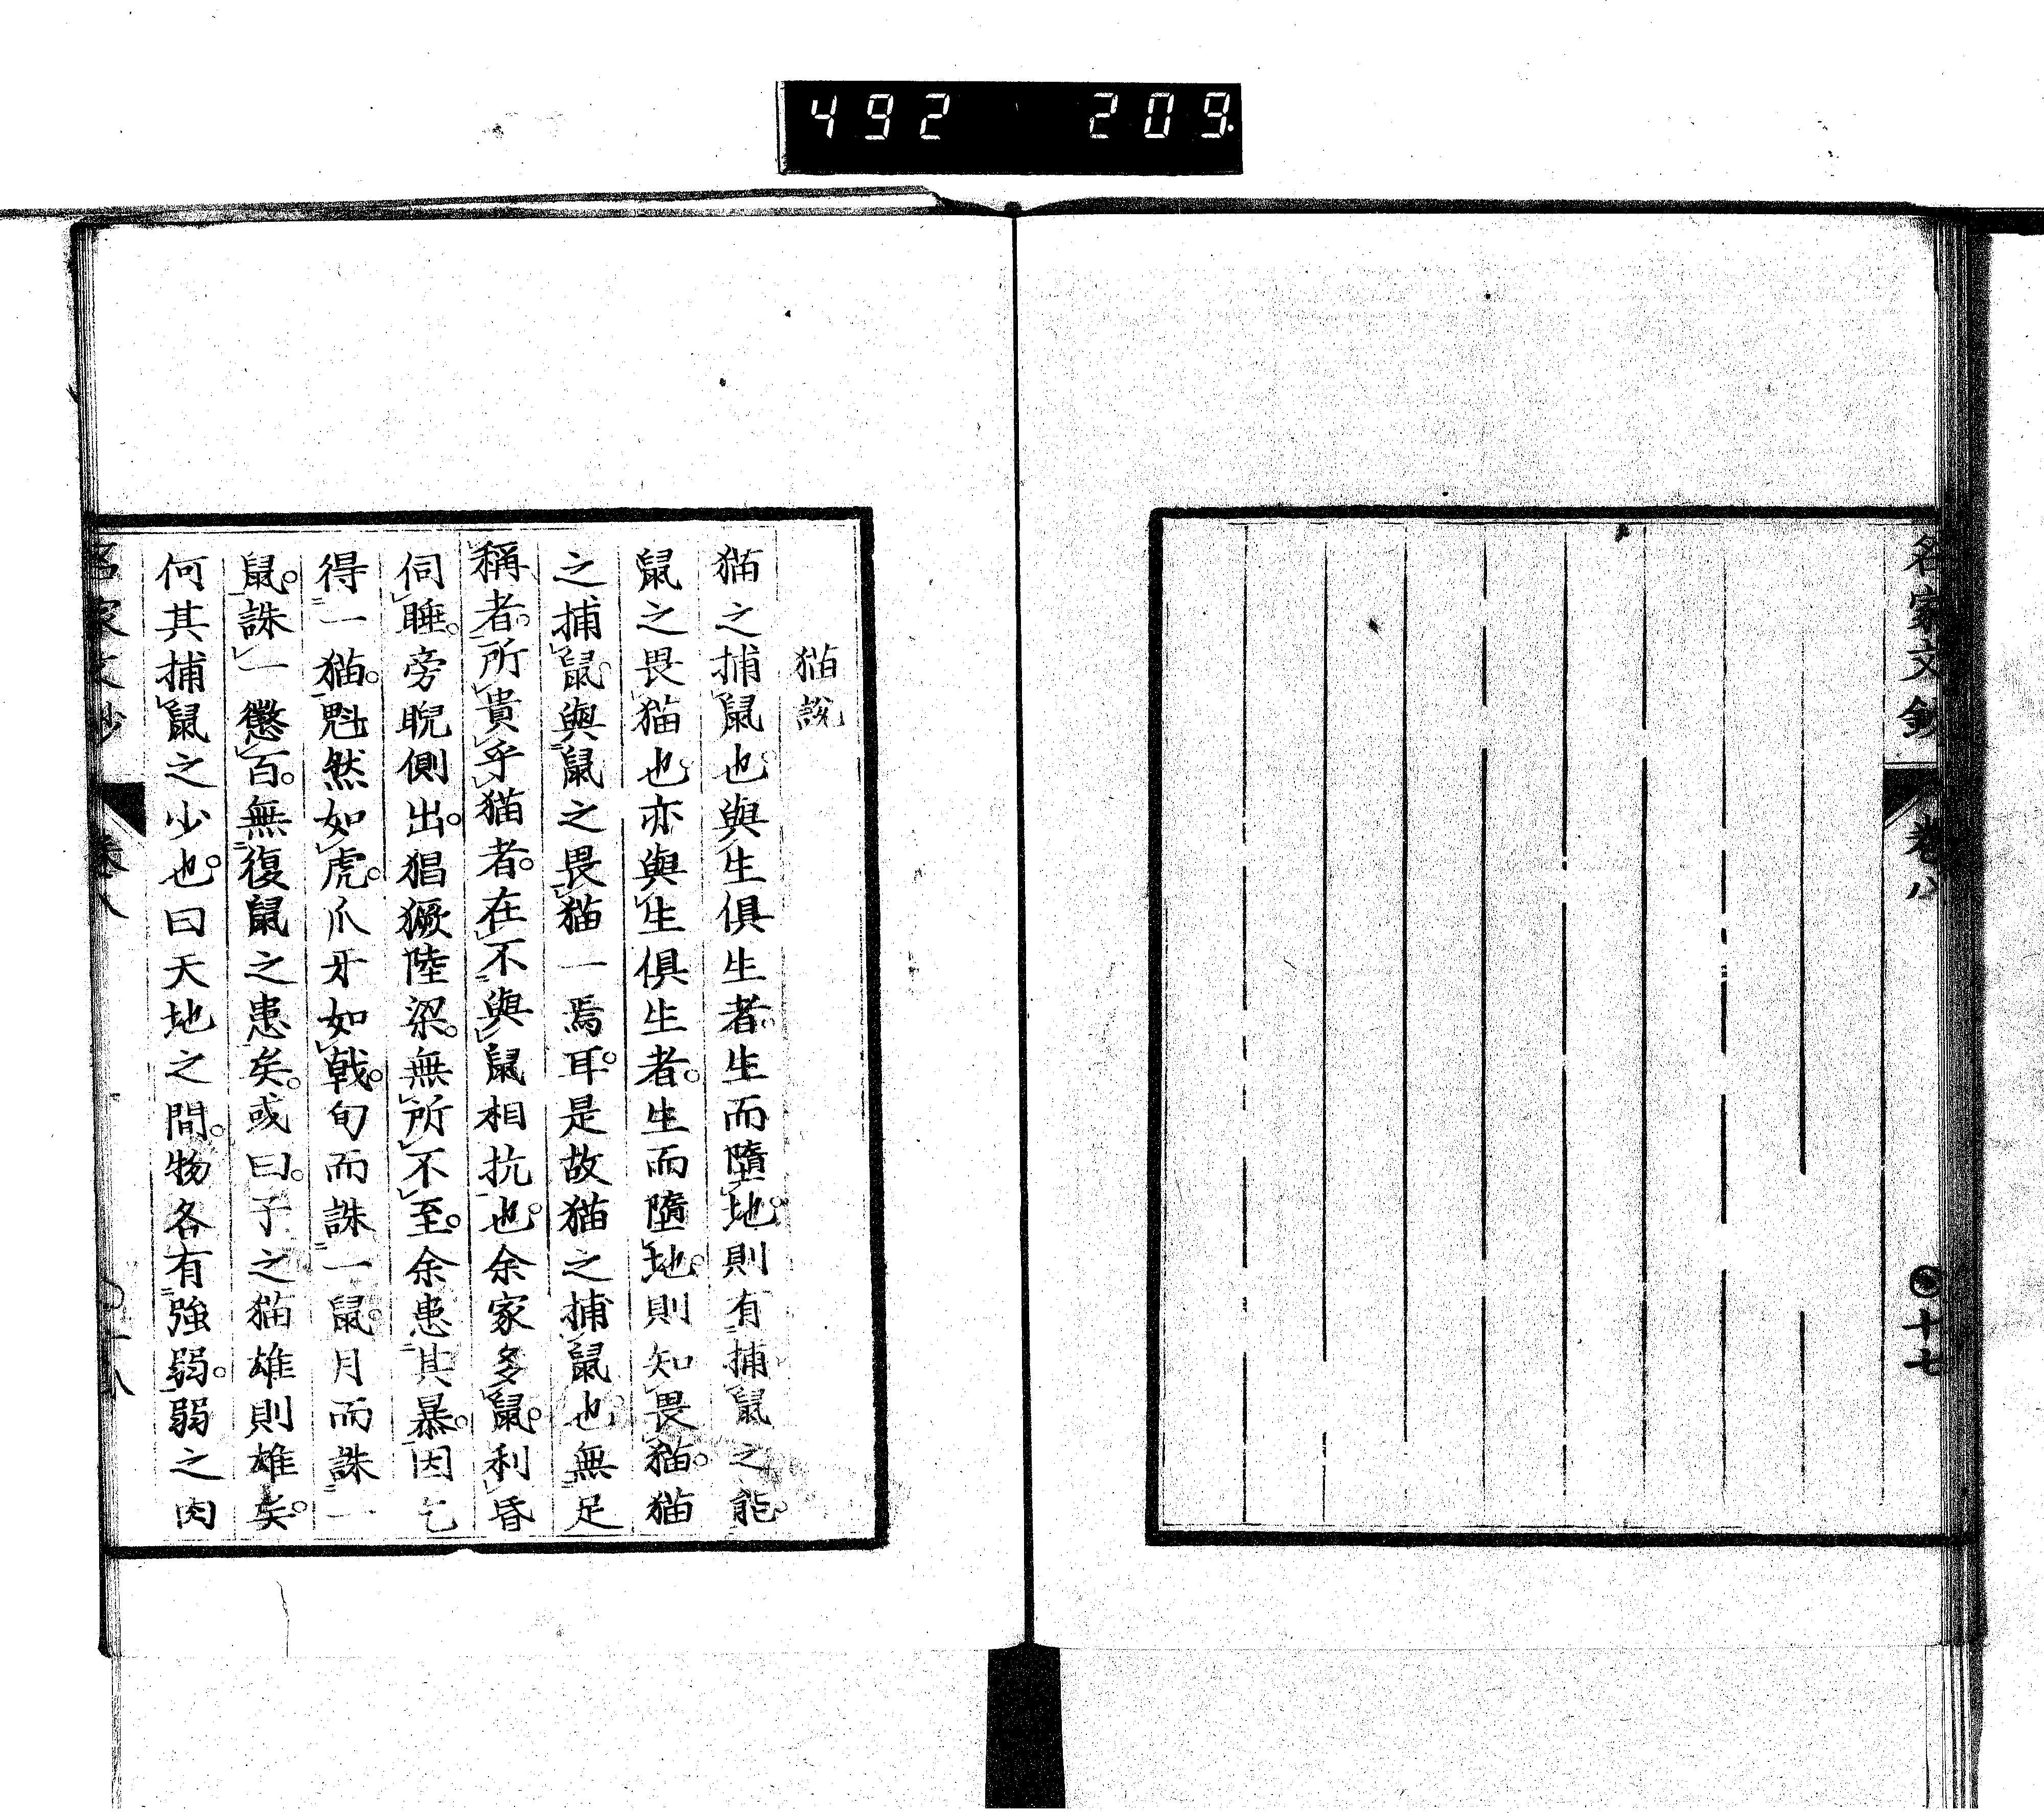 492 209
名家文鈔 卷八 十七
猫說
猫之捕鼠也與生俱生者生而墮地則有捕鼠之能
鼠之畏猫也亦與生俱生者。生而墮地則知畏猫。猫
之捕鼠與鼠之畏猫一焉耳。是故猫之捕鼠也無足
稱者。所貴乎猫者。在不與鼠相抗也。余家多鼠。利昏
伺睡。旁睨側出。猖獗陸梁。無所不至。余患其暴。因乞
得一猫。魁然如虎。爪牙如戟。旬而誅一鼠。月而誅一
鼠。誅一懲百。無復鼠之患矣。或曰。子之猫雄則雄矣。
何其捕鼠之少也。曰天地之間。物各有強弱。弱之肉
名家文鈔 卷八 十八